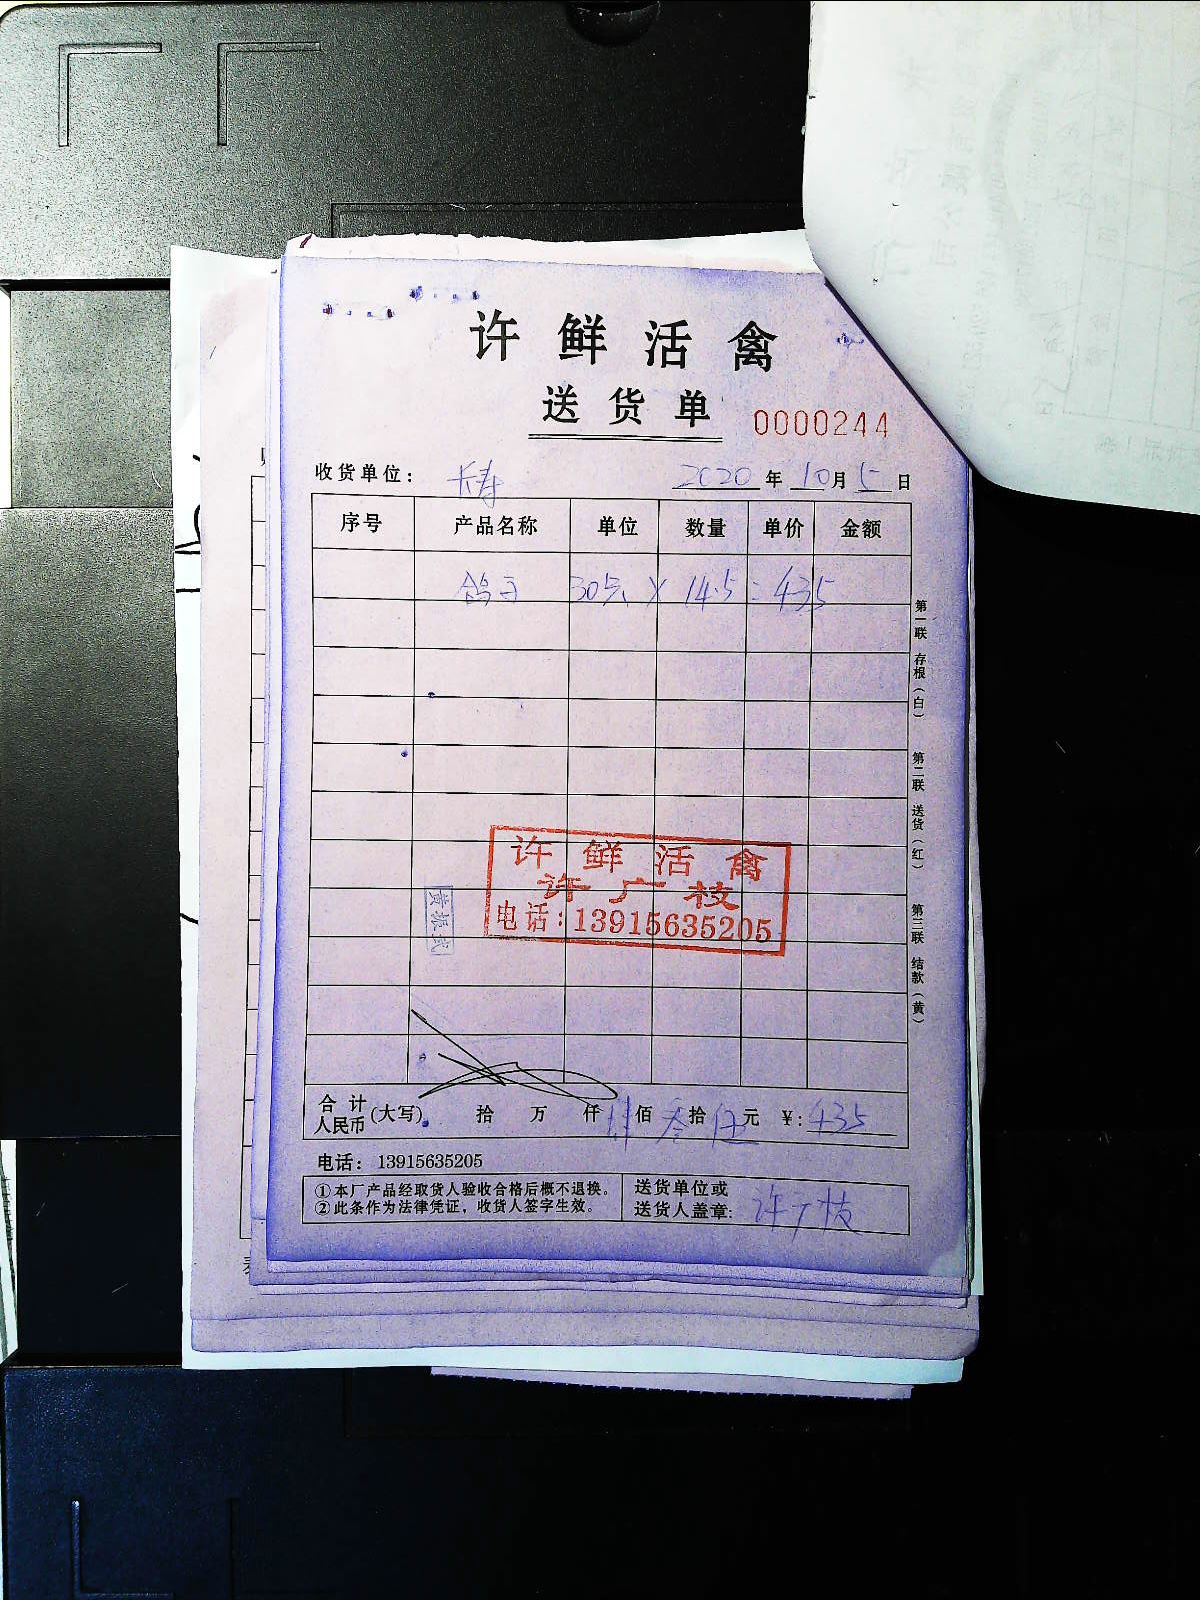 许鲜活禽
送货单
0000244
收货单位： 长寿 2020年10月5日
序号 产品名称 单位 数量 单价 金额
鸽子 30只 × 14.5 = 435
第一联 存根（白） 第二联 送货（红） 第三联 结款（黄）
许鲜活禽
许广枝
电话：13915635205
黄振武
合计人民币（大写） 拾 万 仟 肆佰 叁拾 伍元 ¥：435
电话： 13915635205
①本厂产品经取货人验收合格后概不退换。
②此条作为法律凭证，收货人签字生效。
送货单位或
送货人盖章： 许广枝